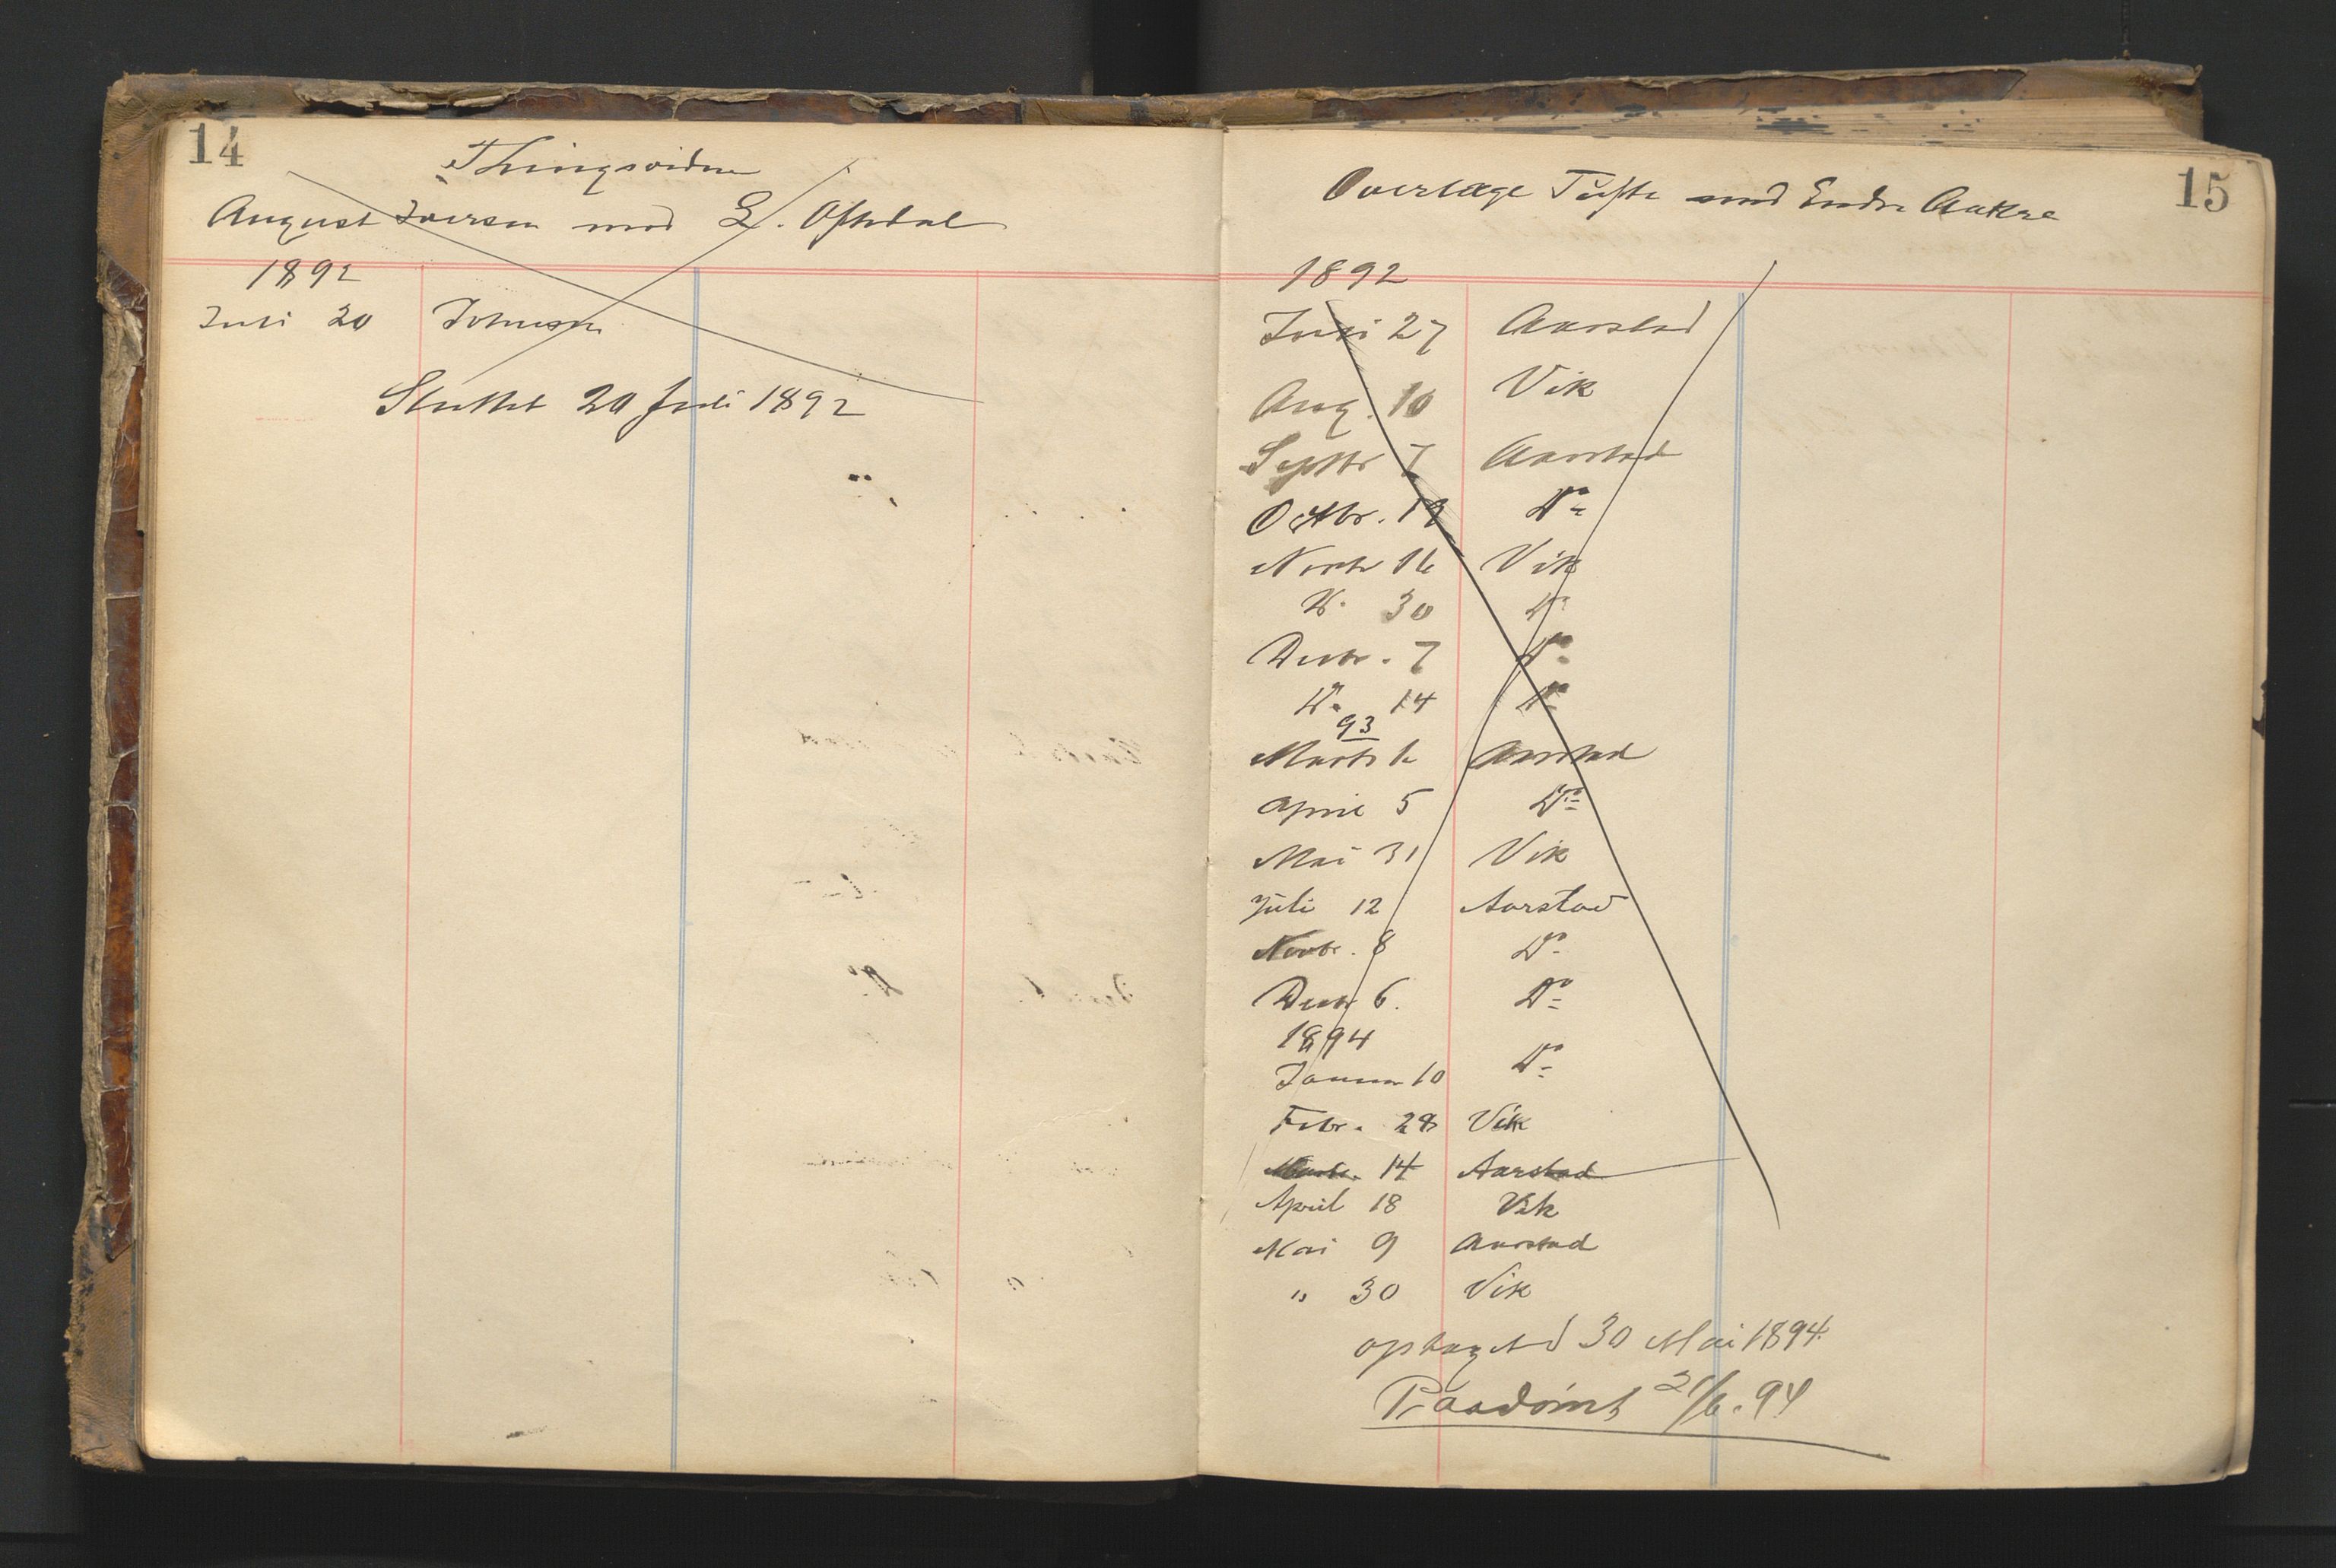 14
Thingsvidne
August Iversen mod L. Oftedal
1892
Juli 20 Johnsen
Sluttet 20 Juli 1892
15
Overlæge Tüfte mod Endre Aakre
1892
Juli 27 Aarstad
Aug. 10 Vik
Septbr 7 Aarstad
Octbr. 19 Do
Novbr 16 Vik
Do 30 Do
Decbr. 7 Do
Do 14 Do
93
Marts 1 Aarstad
April 5 Do
Mai 31 Vik
Juli 12 Aarstad
Novbr. 8 Do
Decbr 6. Do
1894
Januar 10 Do
Febr. 28 Vik
Marts. 14 Aarstad
April 18 Vik
Mai 9 Aarstad
" 30 Vik
optaget d 30 Mai 1894.
Paadömt 21/6. 94